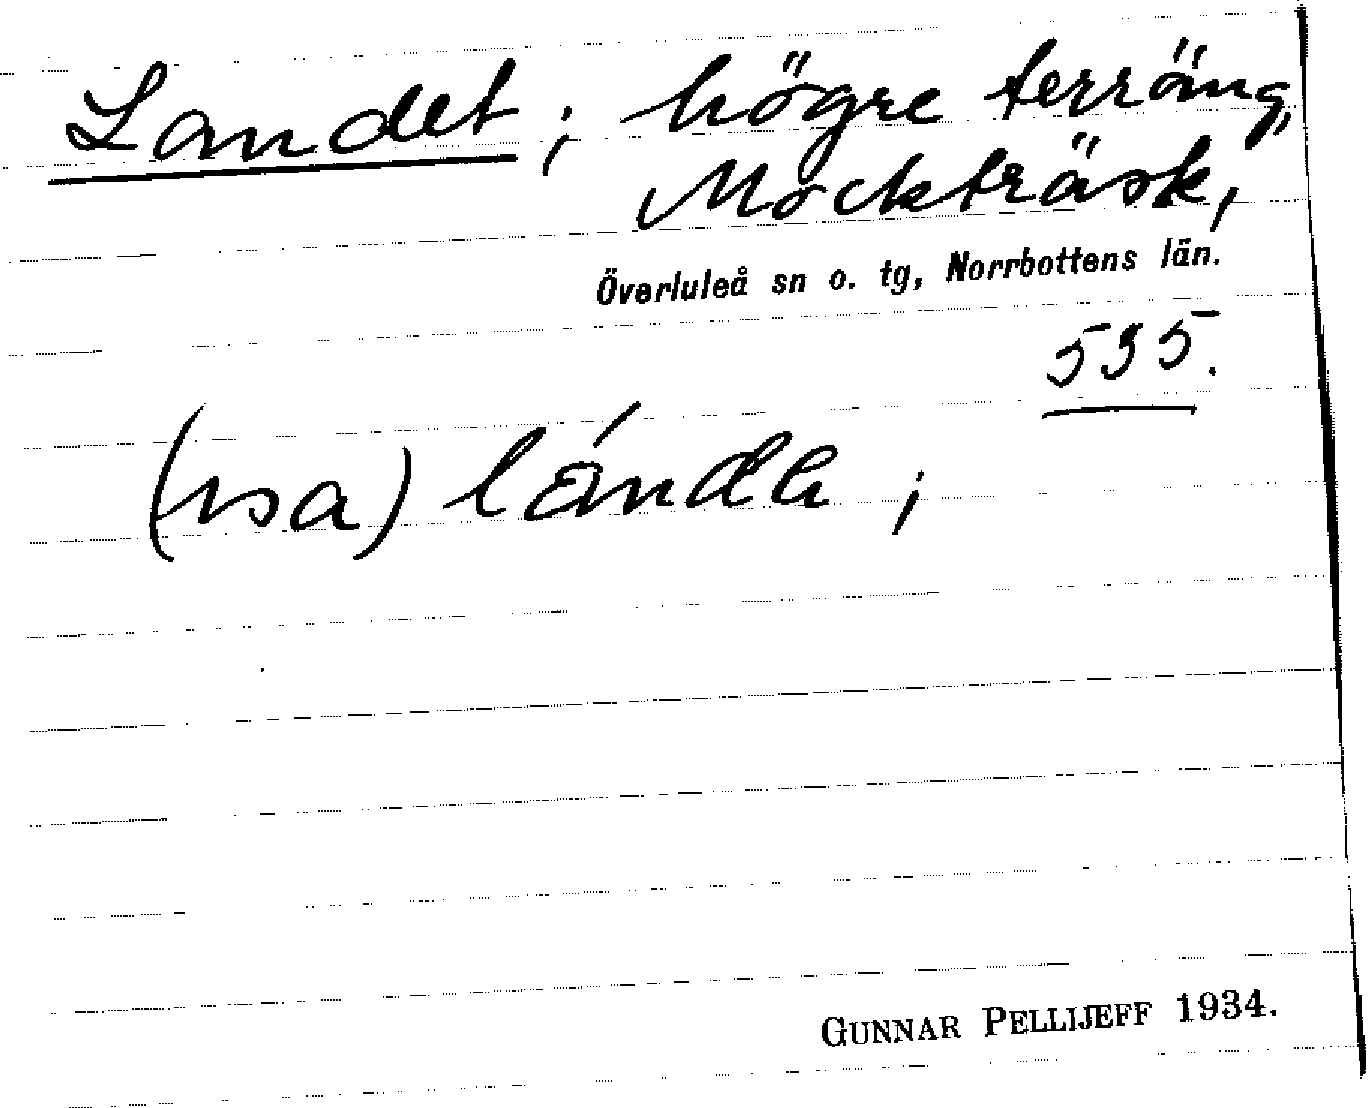 Landet; högre terräng,
Mockträsk,
Överluleå sn o. tg, Norrbottens län.
535.
(usa) lánda;
GUNNAR PELLIJEFF 1934.